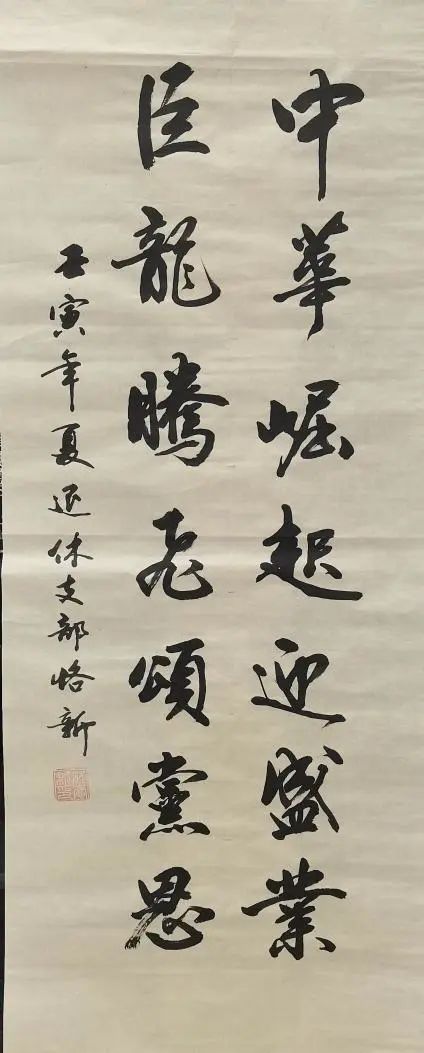 中華崛起迎盛業
巨龍騰飛頌黨恩
壬寅年夏退休支部恪新